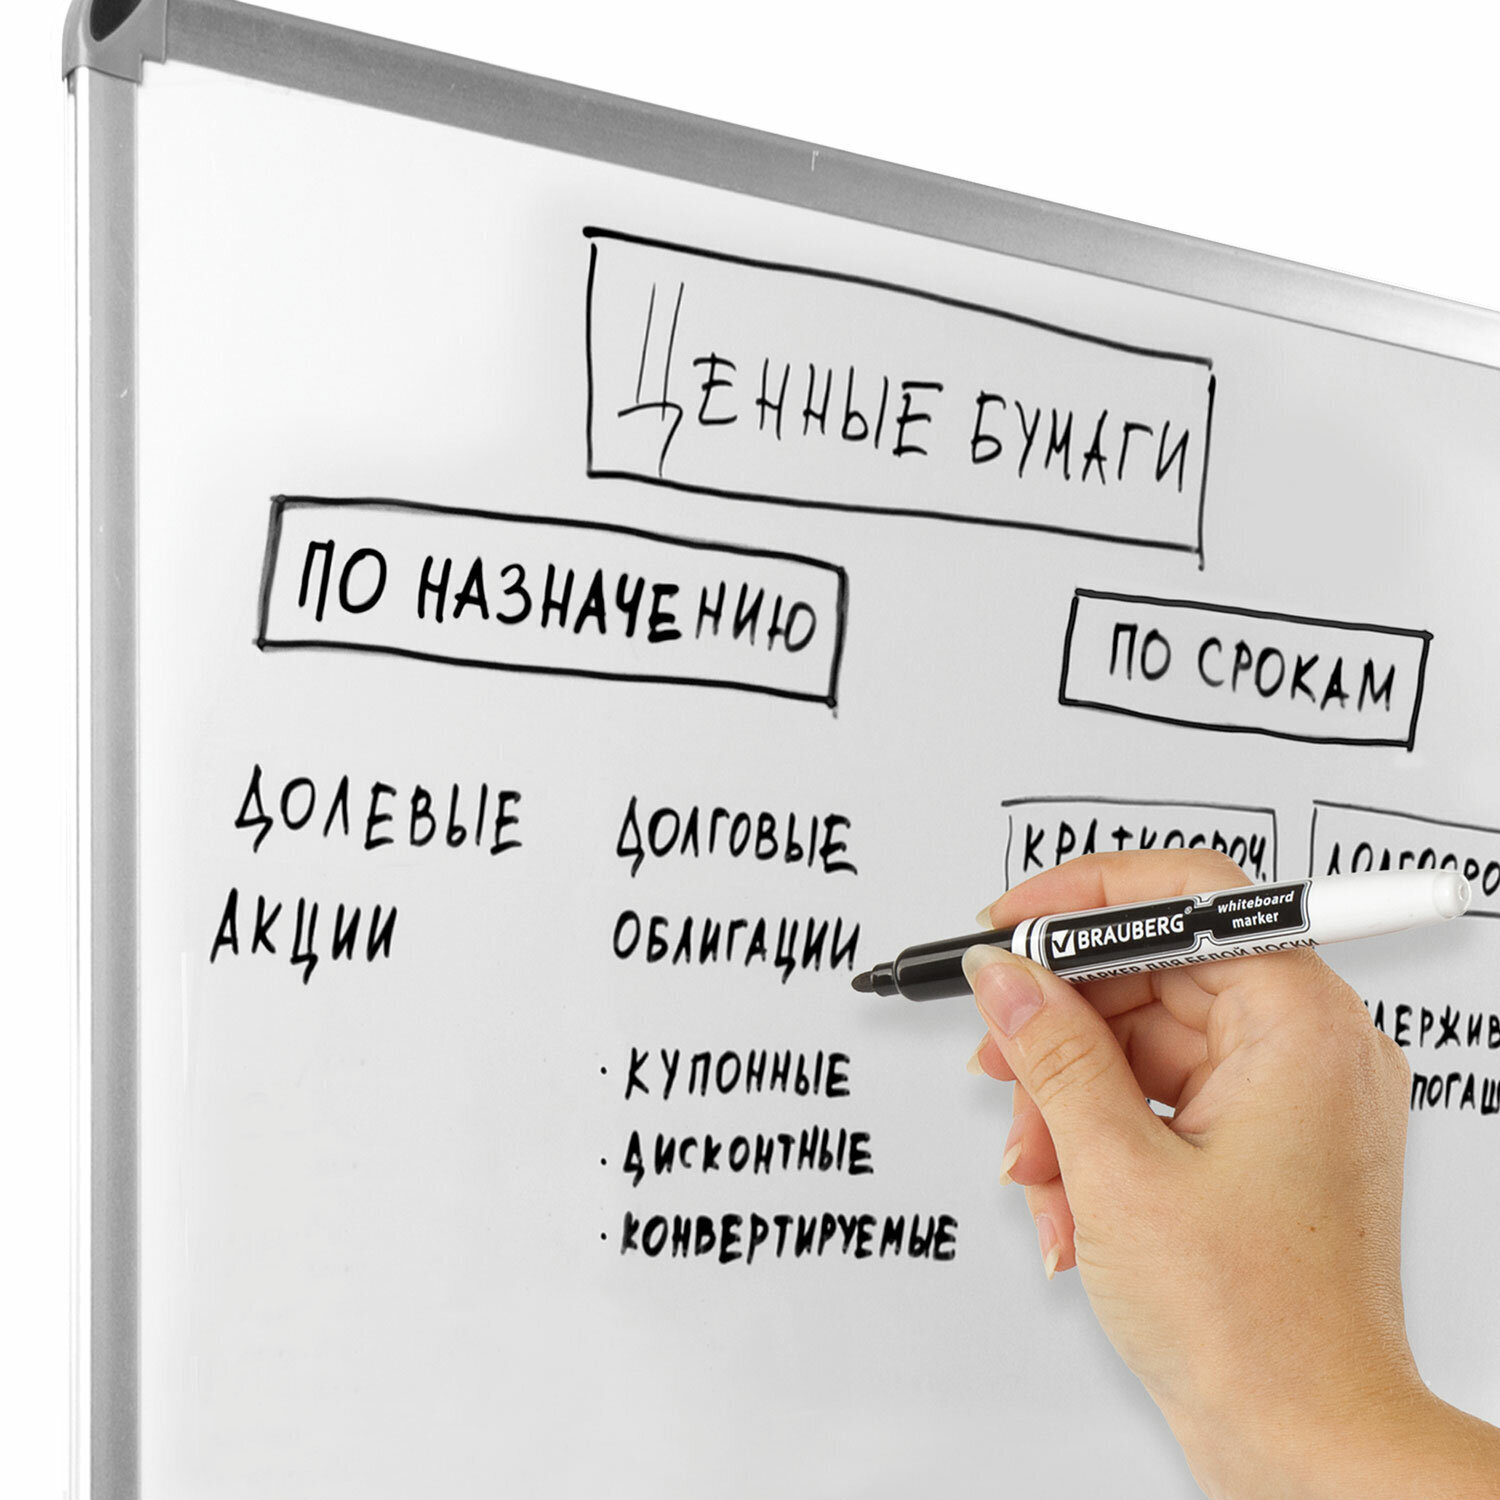 ЦЕННЫЕ БУМАГИ
ПО НАЗНАЧЕНИЮ
ПО СРОКАМ
ДОЛЕВЫЕ
АКЦИИ
ДОЛГОВЫЕ
ОБЛИГАЦИИ
· КУПОННЫЕ
· ДИСКОНТНЫЕ
· КОНВЕРТИРУЕМЫЕ
КРАТКОСРОЧ.
ДОЛГОСРО
ДЕРЖИВ
ПОГАШ
BRAUBERG®
whiteboard
marker
МАРКЕР ДЛЯ БЕЛОЙ ДОСКИ